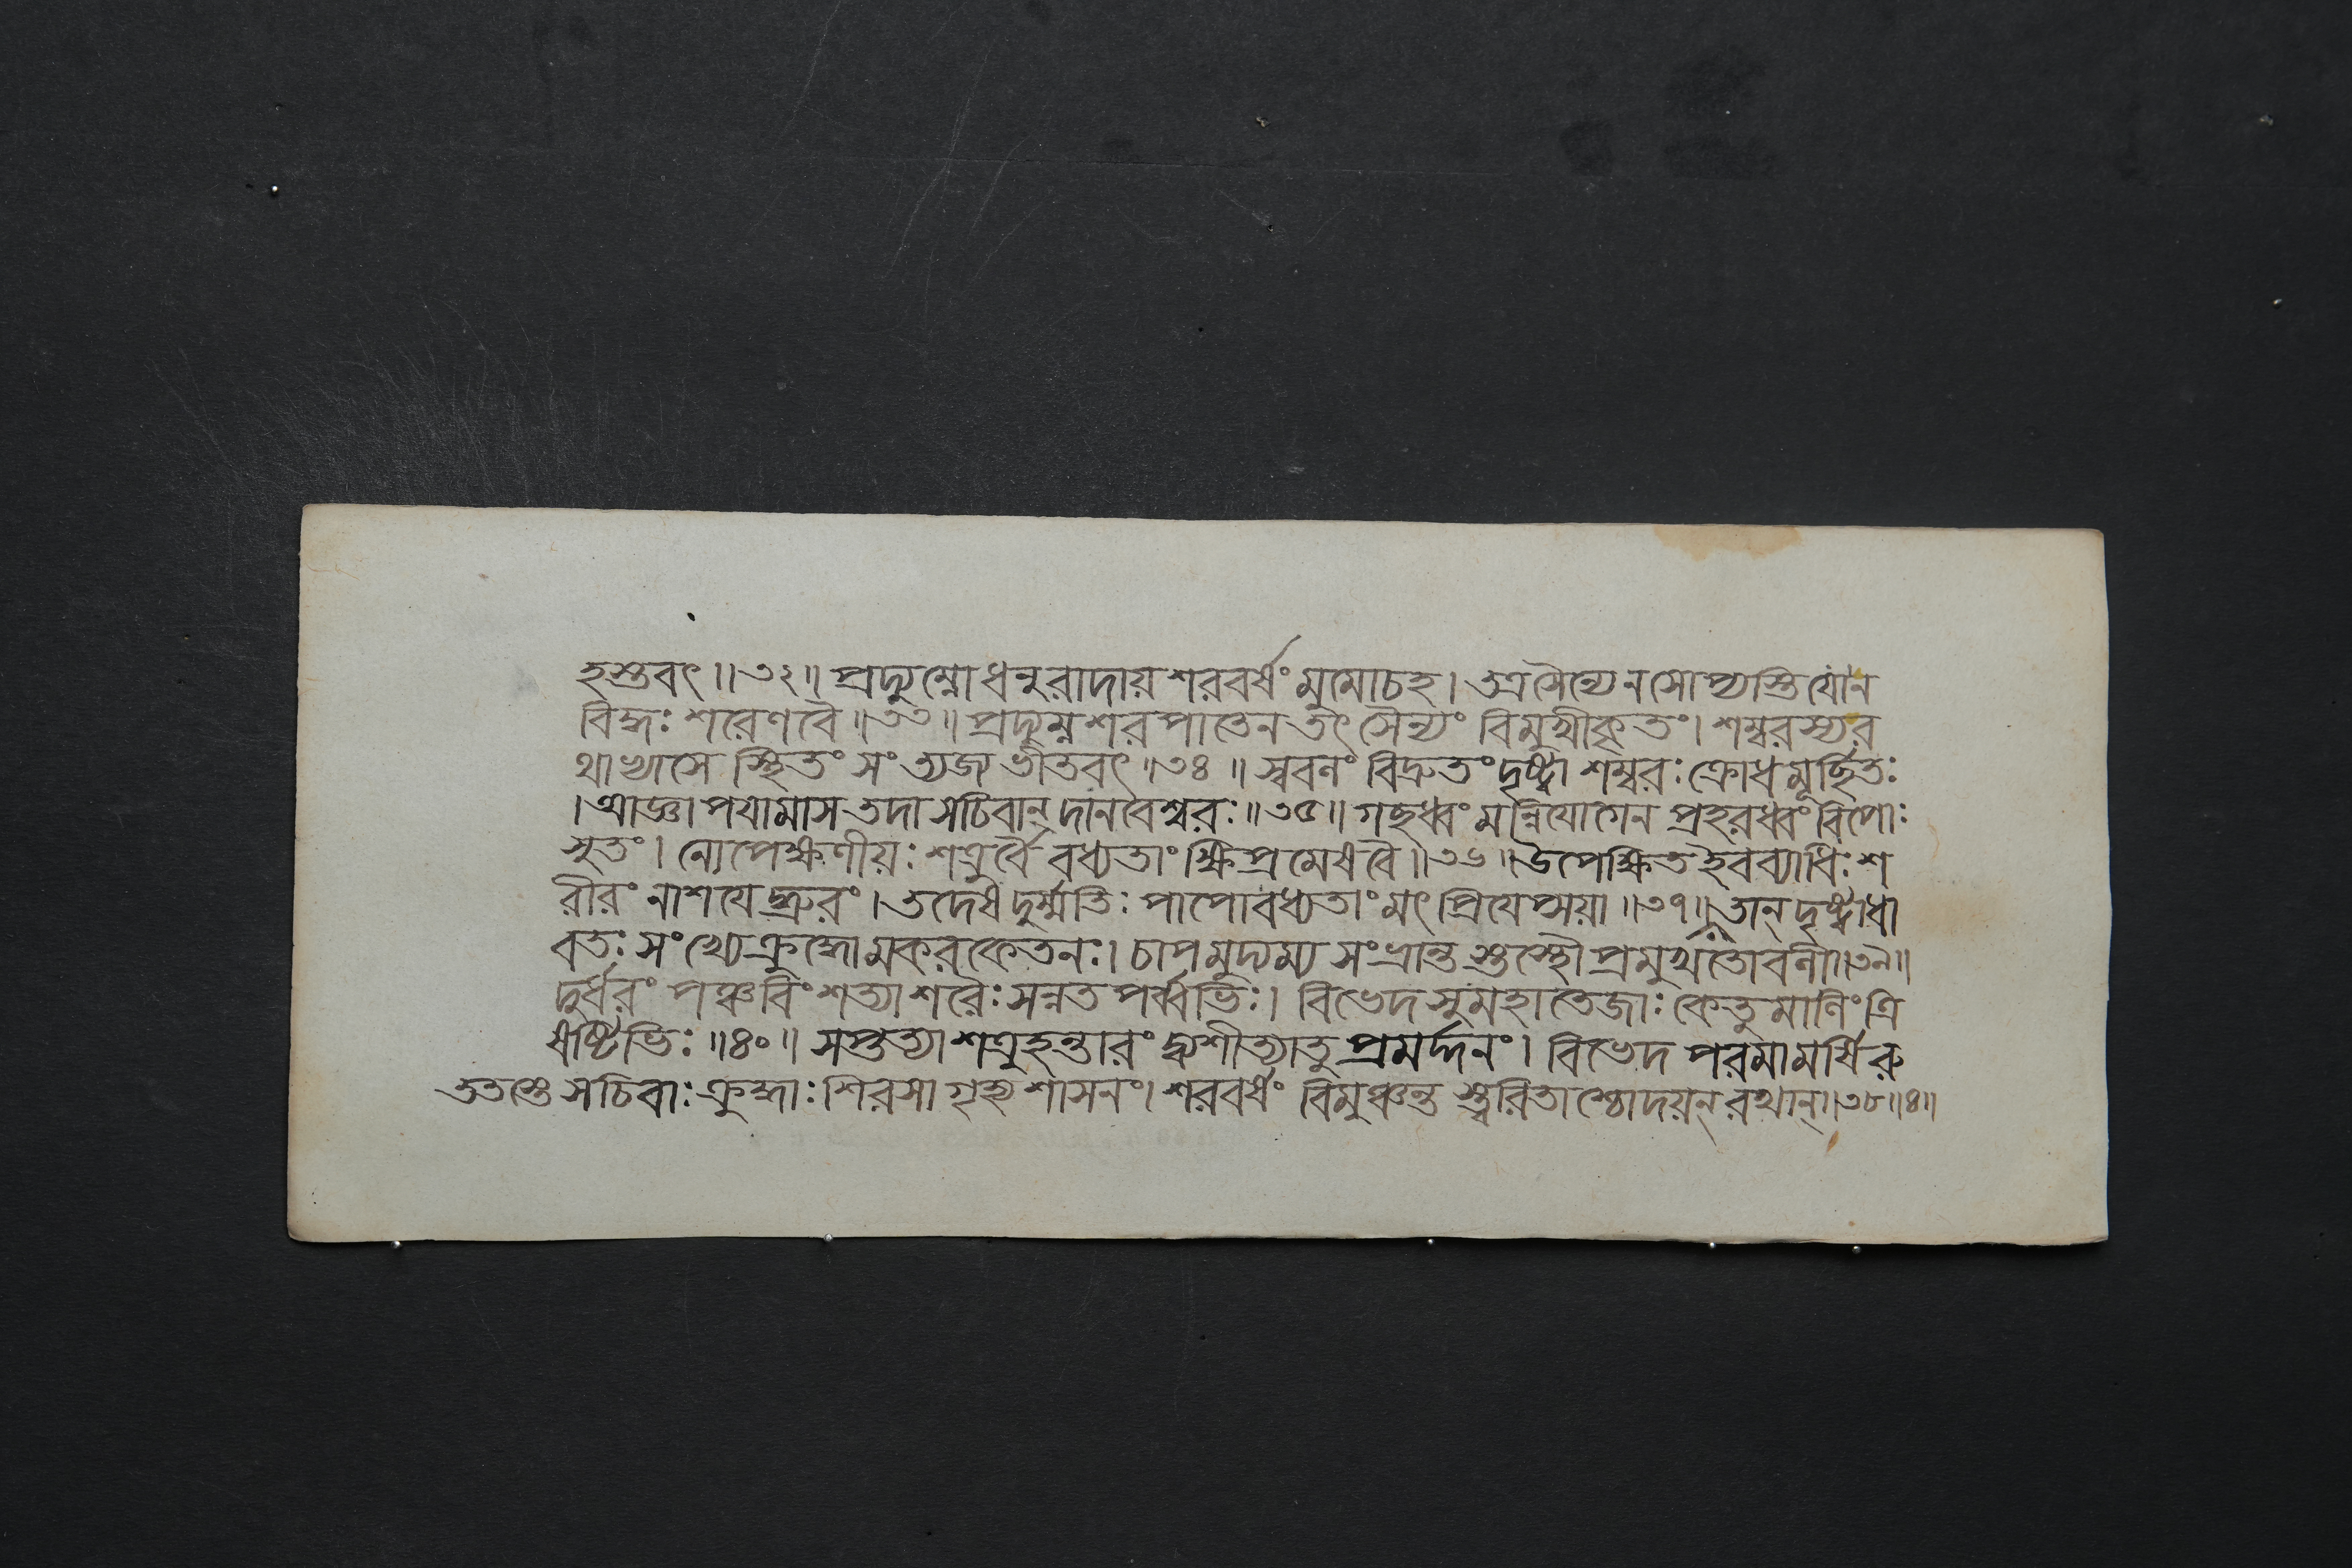 হস্তবৎ॥৩২॥ প্রদ্যুম্নোধনুরাদায়শরবর্ষংমুমোচহ।তত্রসৈন্যেনসোপ্যস্তিযোন
বিদ্ধঃশরেণবৈ॥৩৩॥প্রদ্যুম্নশরপাতেনতৎসৈন্যং বিমুখীকৃতং।শম্বরস্যর
থাভ্যাসে স্থিতংসংত্যজ্যভীতবৎ॥৩৪॥ স্ববলং বিদ্রুতংদৃষ্ট্বা শম্বরঃক্রোধমূর্ছিতঃ
।আজ্ঞাপযামাসতদাসচিবান্ দানবেশ্বরঃ॥৩৫॥গছধ্বংমন্নিযোগেন প্রহরধ্বংরিপোঃ
সুতং।নোপেক্ষণীয়ঃশত্রুর্বৈ বধ্যতাংক্ষিপ্রমেষবৈ॥৩৬॥উপেক্ষিতইবব্যাধিঃশ
রীরংনাশযেদ্ধ্রুরং।তদেষদুর্ম্মতিঃপাপোবধ্যতাংমৎপ্রিযেপ্সয়া॥৩৭॥তান্ দৃষ্ট্বাধা
বতঃ সংখ্যেক্রুদ্ধোমকরকেতনঃ।চাপমুদ্যম্য সংভ্রান্তস্তস্থৌপ্রমুখতোবলী॥৩৯॥
দুর্ধরং পঞ্চবিংশত্যাশরৈঃসন্নতপর্ব্বভিঃ। বিভেদসুমহাতেজাঃকেতুমালিংত্রি
ষষ্টিভিঃ॥৪০॥ সপ্তত্যাশত্রুহন্তারং দ্ব্যশীত্যাতুপ্রমর্দ্দনং। বিভেদপরমামর্ষিরু
ততস্তেসচিবাঃক্রুদ্ধাঃশিরসাগৃহ্যশাসনং।শরবর্ষং বিমুঞ্চন্তস্ত্বরিতাশ্চোদয়ন্ রথান্॥৩৮॥৪॥